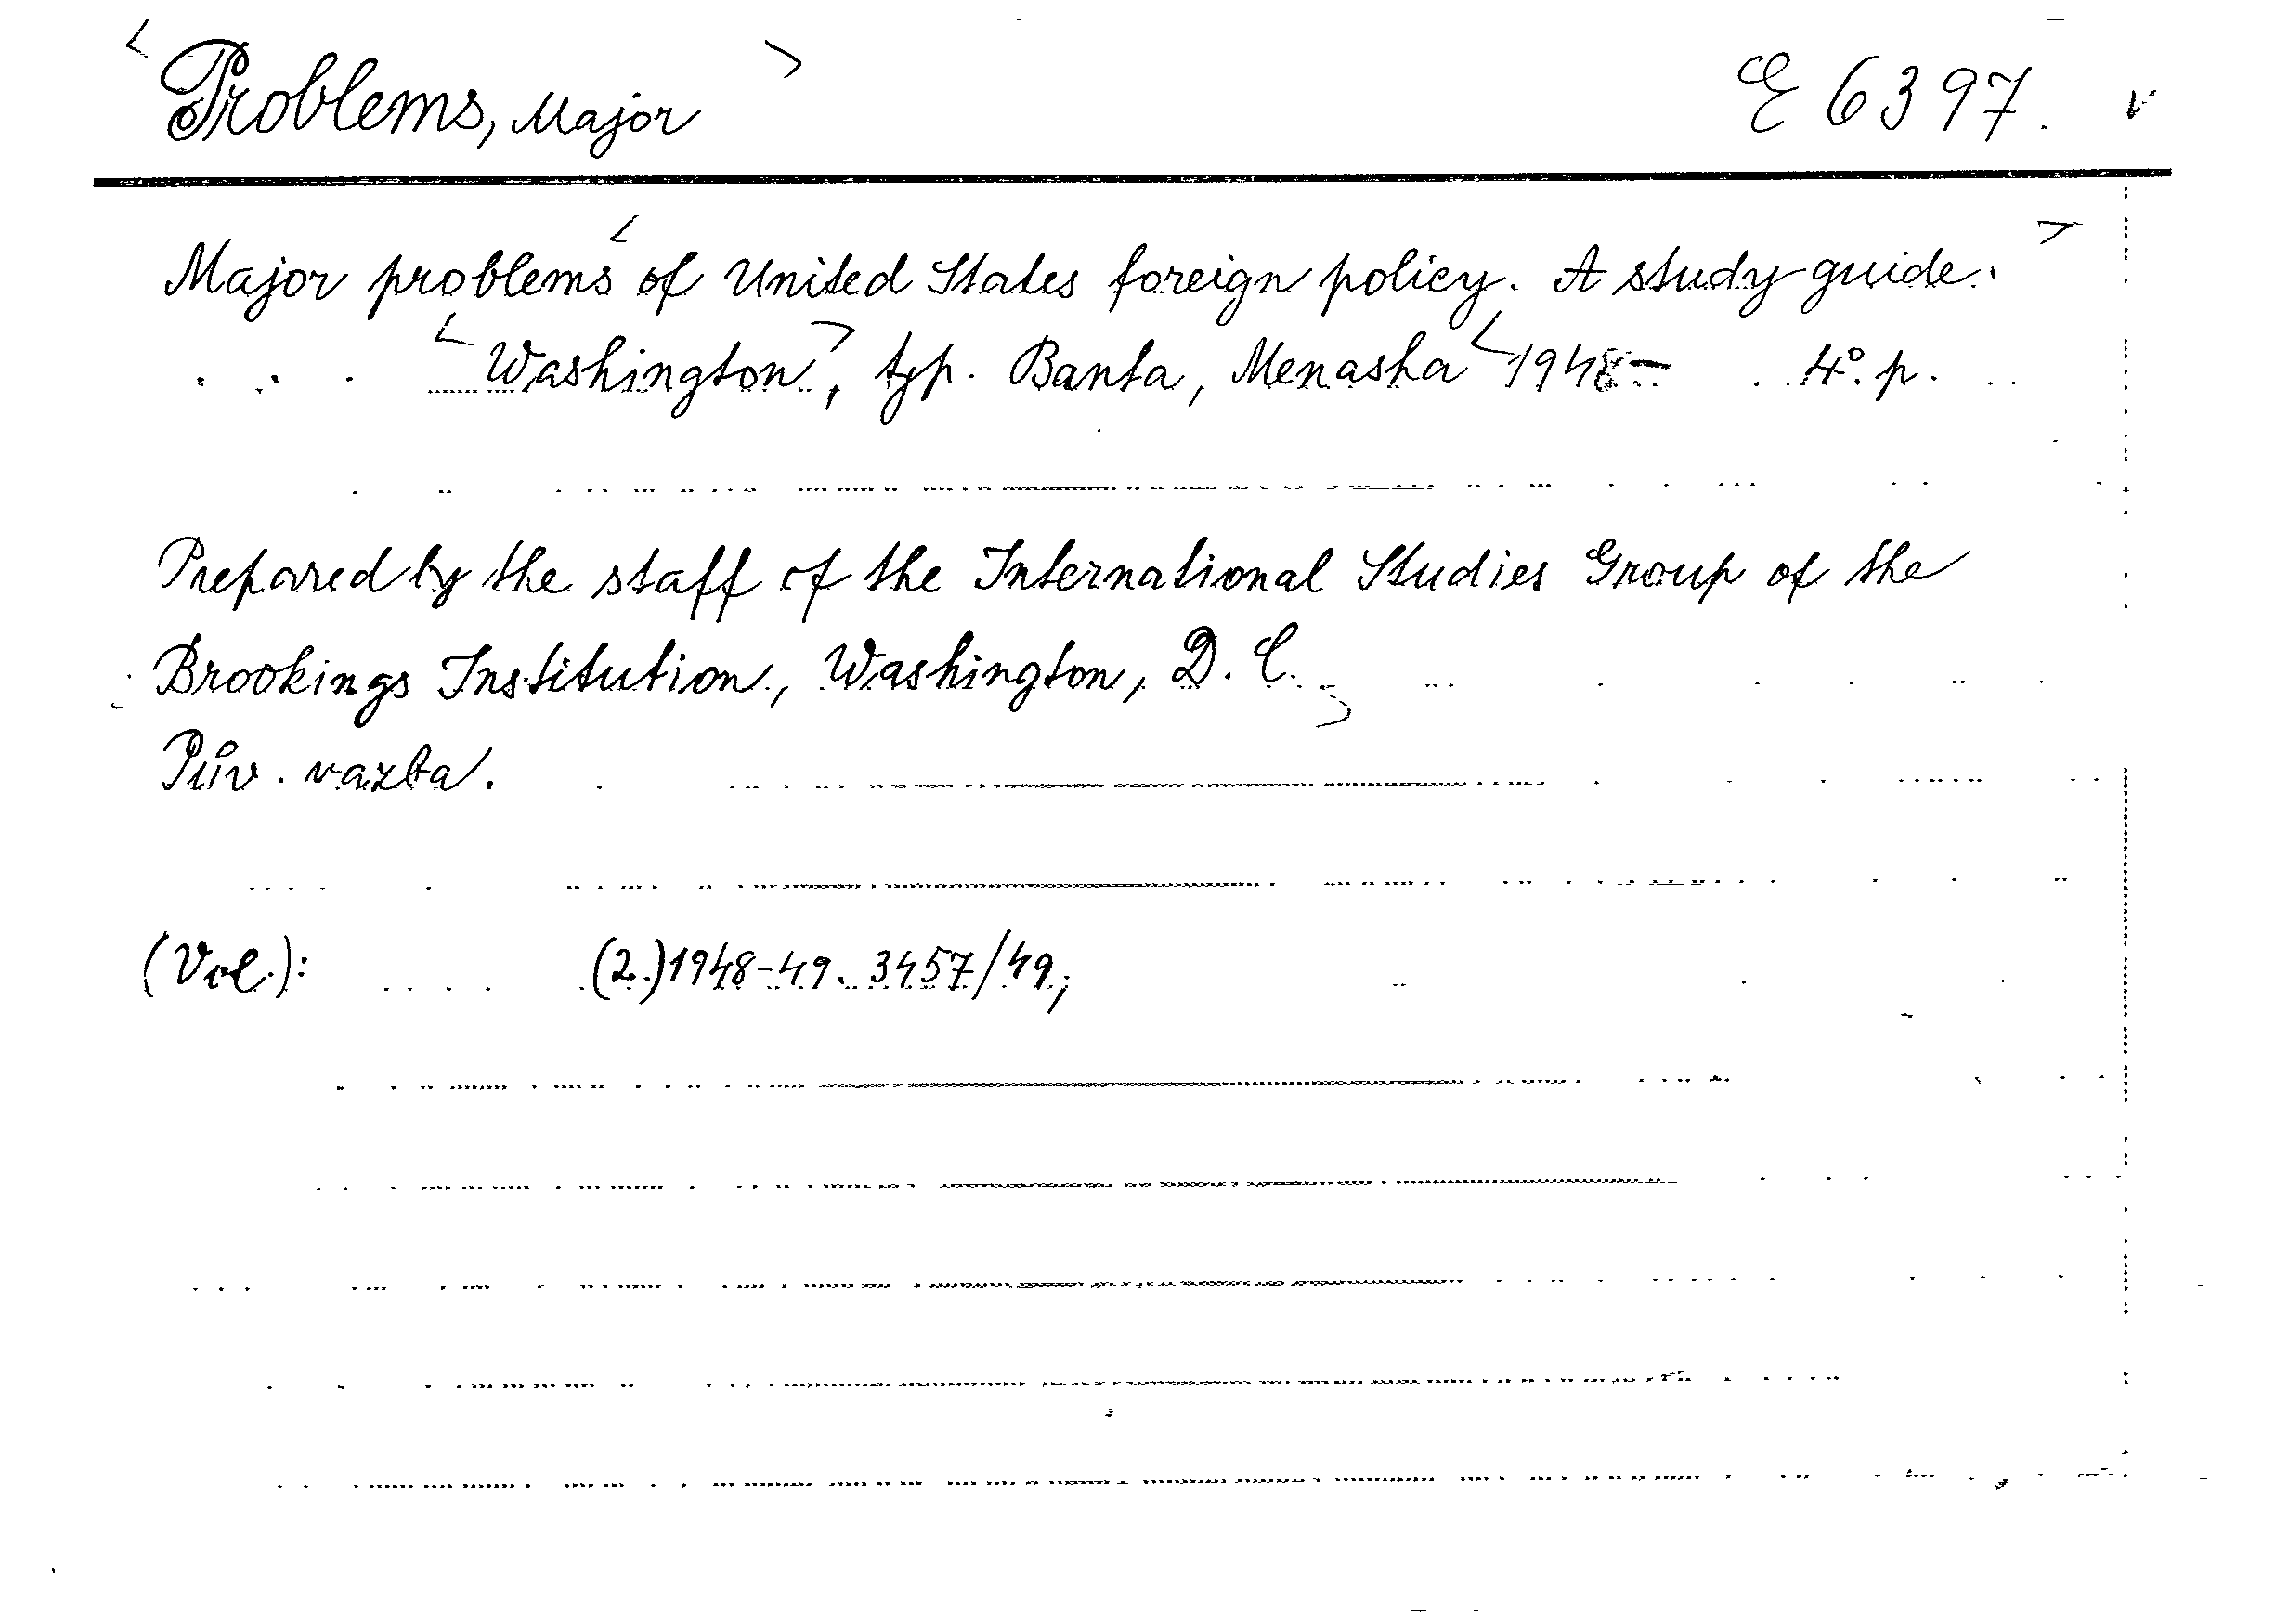 < Problems, Major > E 6397. v
Major problems < of United States foreign policy. A study guide. >
< Washington >, typ. Banta, Menasha < 1948- 4°. p.
Prepared by the staff of the International Studies Group of the
Brookings Institution, Washington, D. C.
Pův. vazba.
(Vol.): (2.) 1948-49. 3457/49;